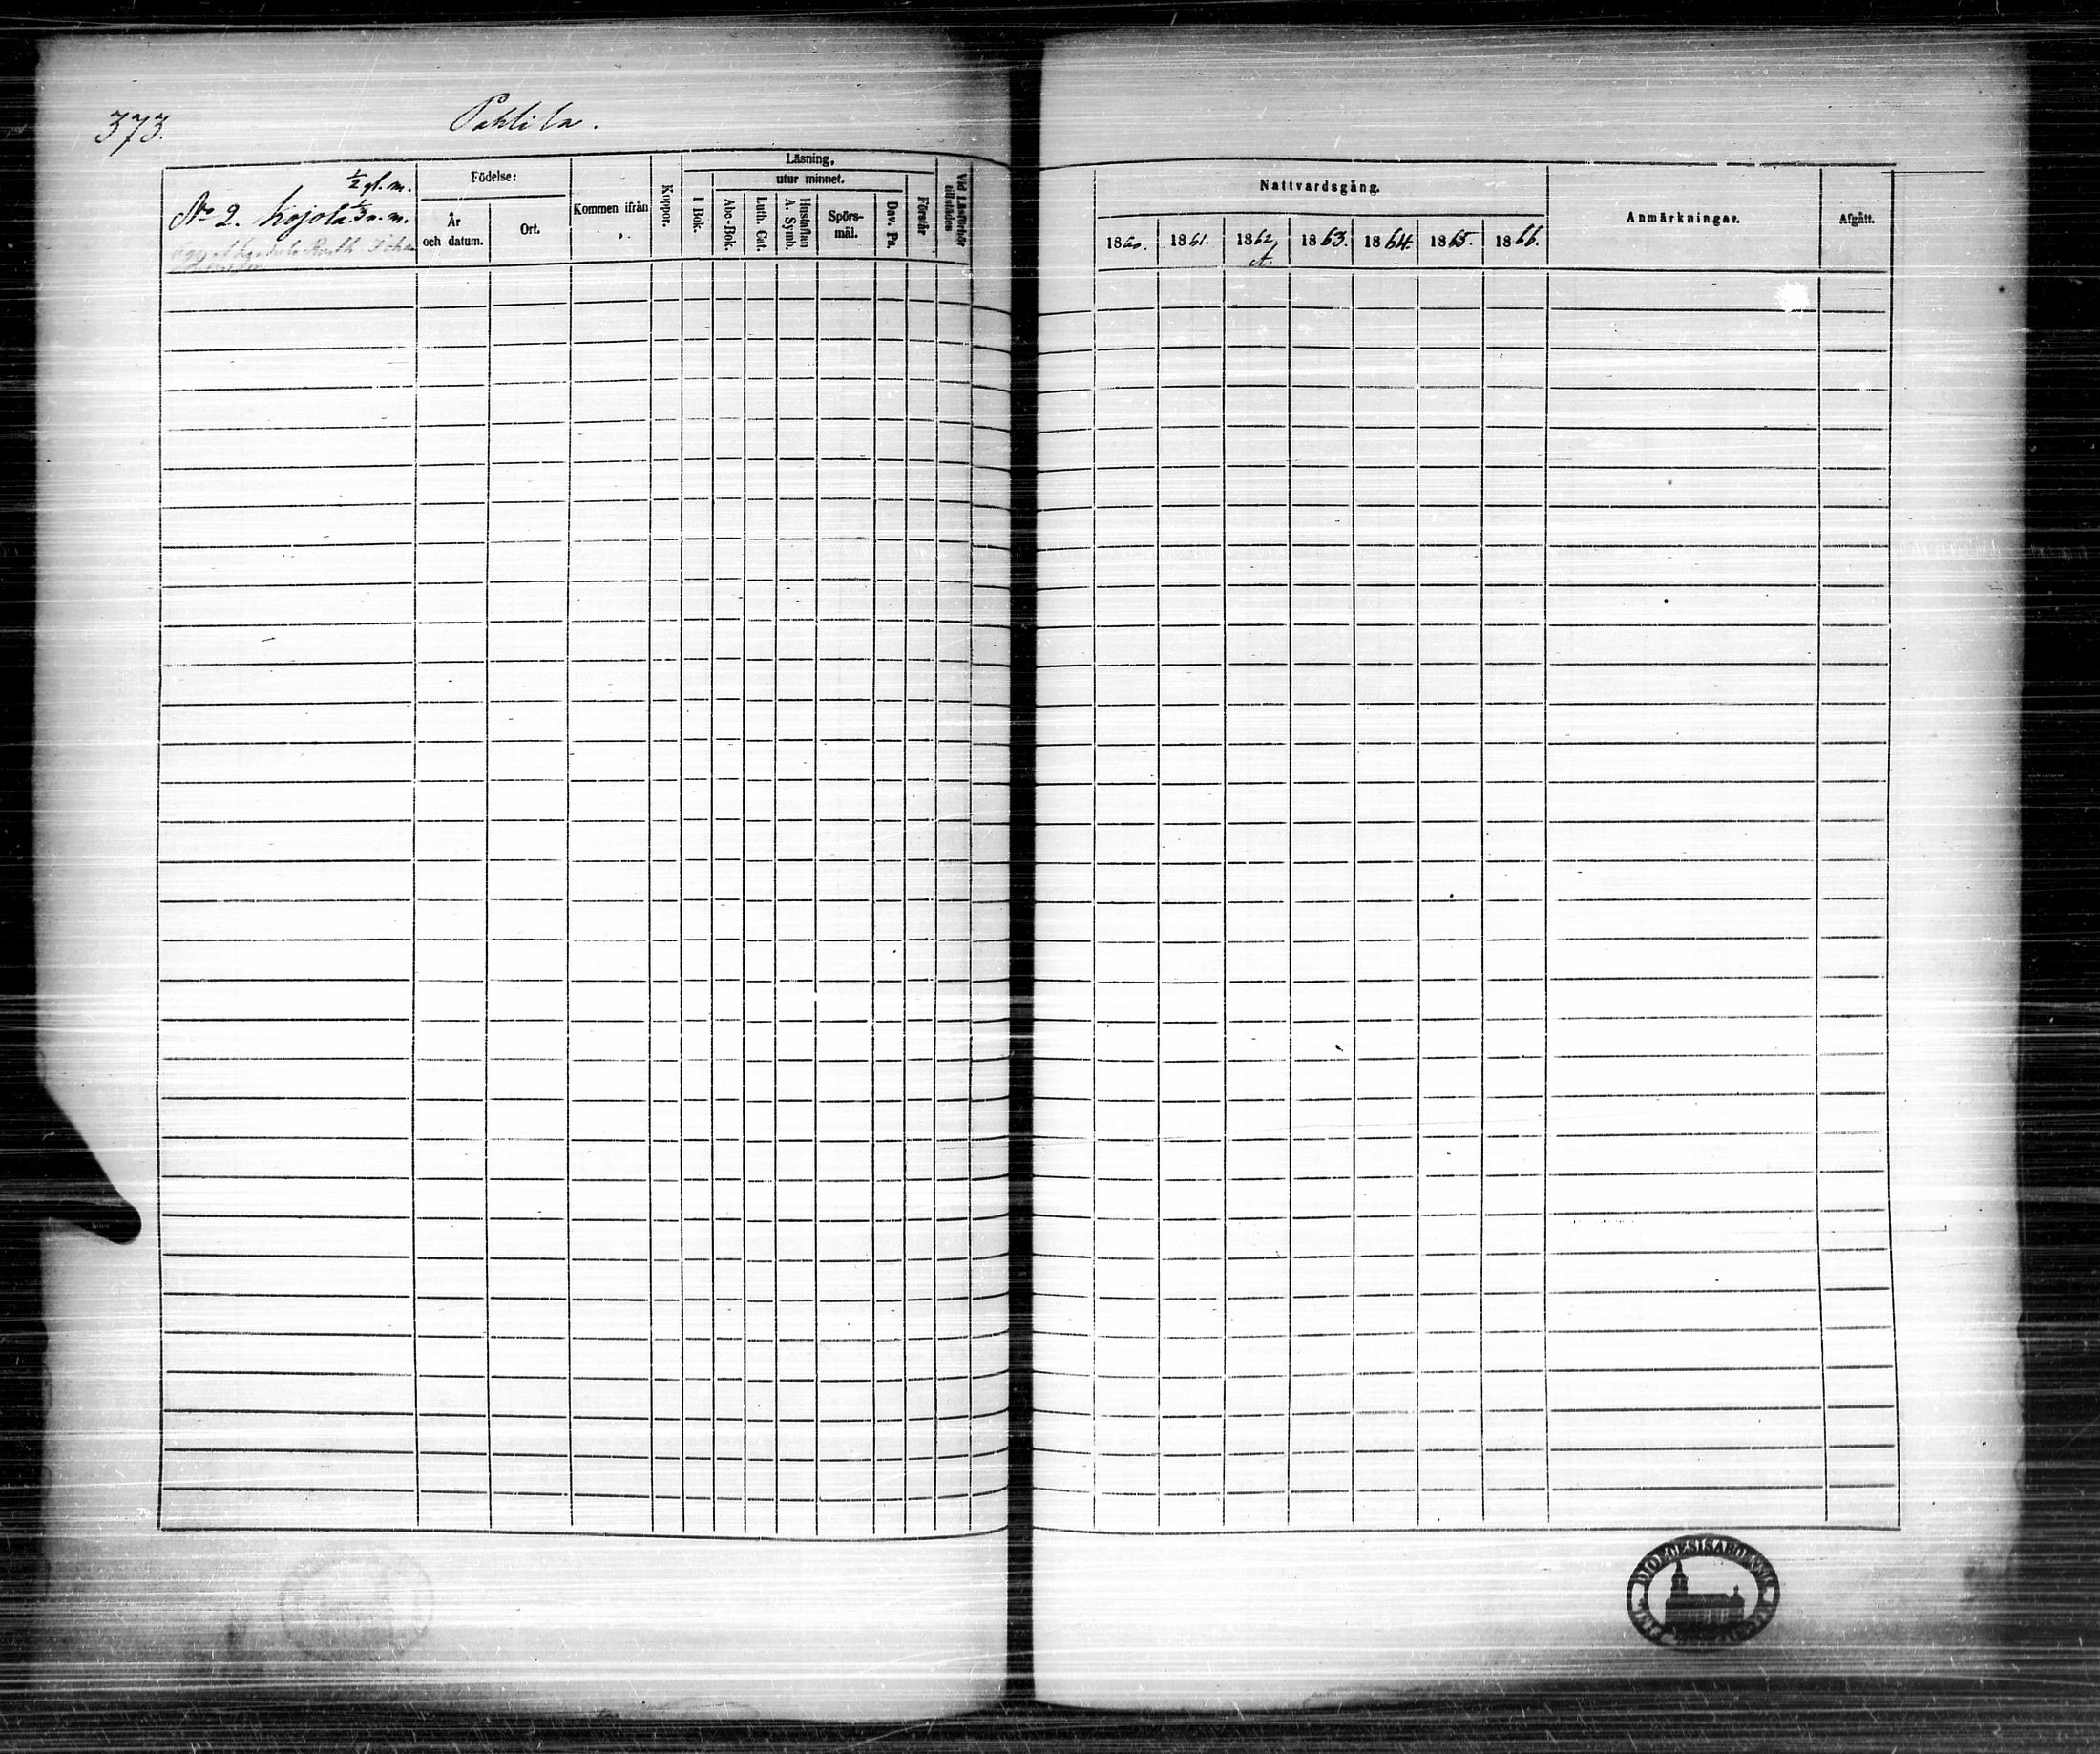 373.
Pahlila.
½ gl. m.
No 2. Kojola ⅓ n. m.
Födelse:
År och datum.
Ort.
Kommen ifrån
Koppor.
Läsning,
utur minnet.
I Bok.
Abc-Bok.
Luth. Cat.
Hustaflan
A. Symb.
Spörs-
mål.
Dav. Ps.
Förstår
Vid Läsförhör
tillstädes
Nattvardsgång.
1860. 1861. 1862 1863. 1864. 1865. 1866.
Anmärkningar.
Afgått.